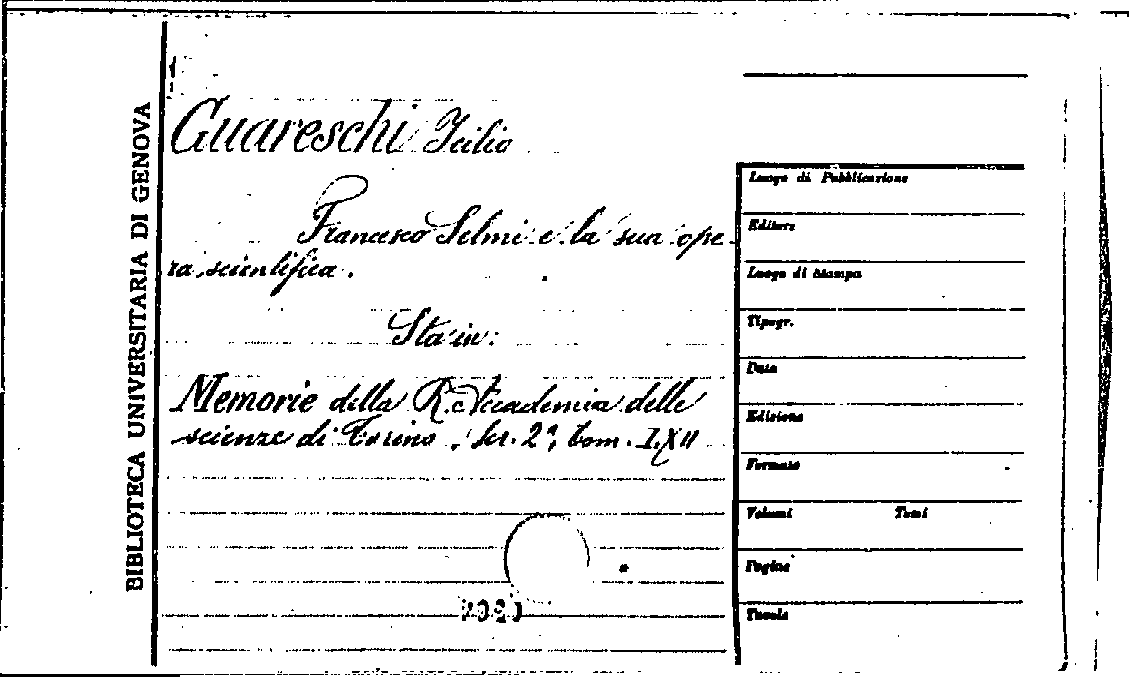 BIBLIOTECA UNIVERSITARIA DI GENOVA
Guareschi Icilio
Francesco Selmi e la sua ope-
ra scientifica.
Sta in:
Memorie della R. Accademia delle
scienze di Torino, Ser. 2ª, tom. LXII
Luogo di Pubblicazione
Editore
Luogo di Stampa
Tipogr.
Data
Edizione
Formato
Volumi Tomi
Pagine
Tavole